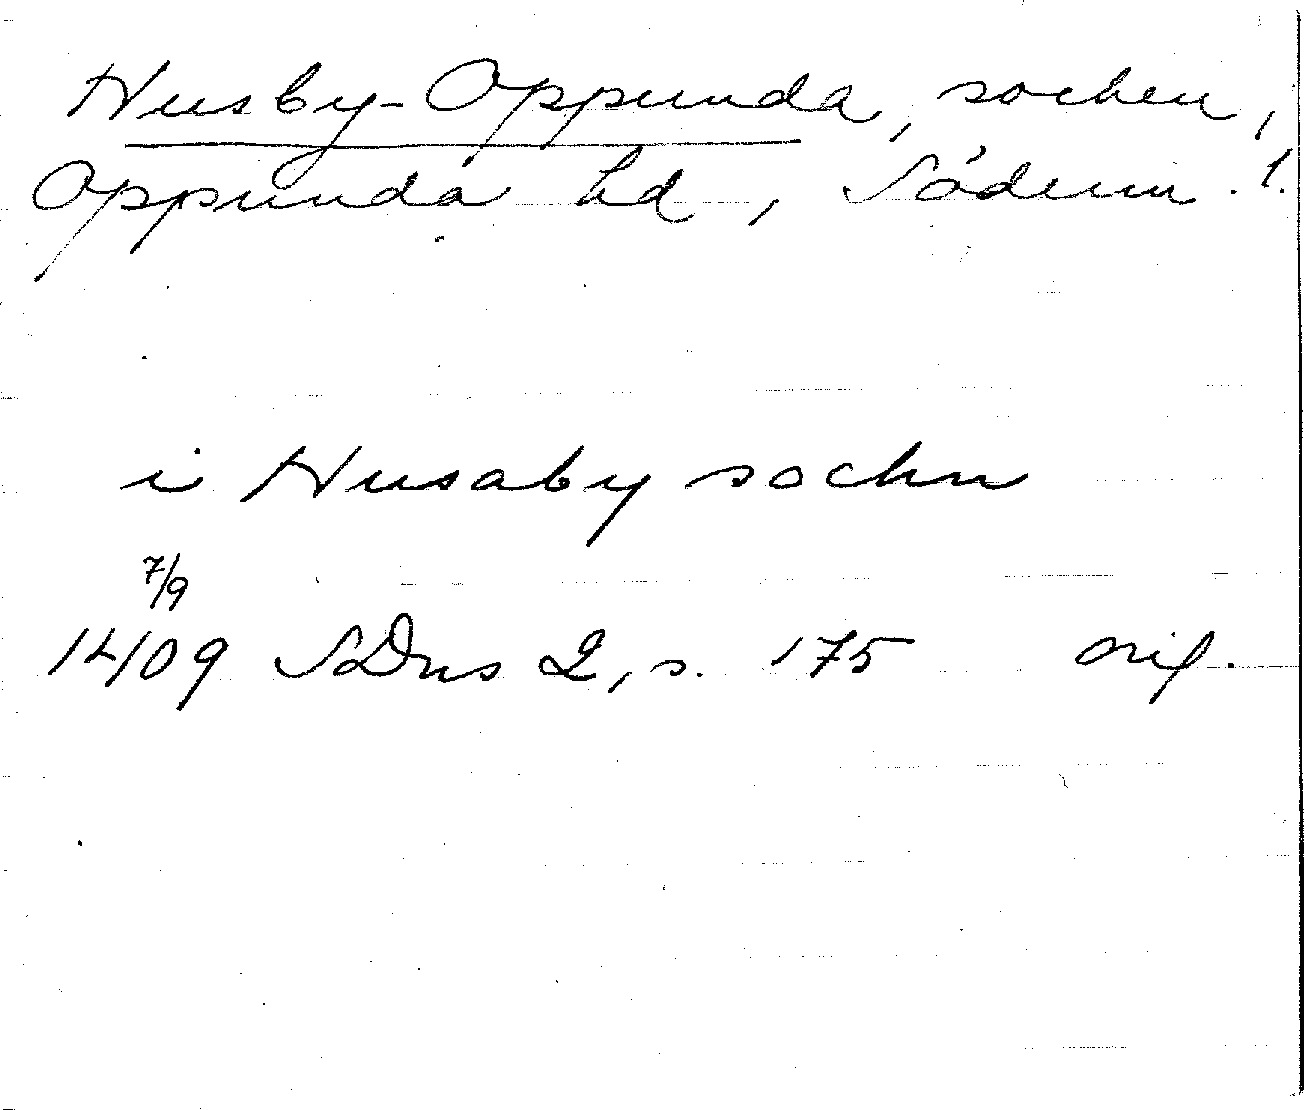 Husby-Oppunda, socken,
Oppunda hd, Söderm. l.
i Husaby sochn
7/9
1409 SDns 2, s. 175 orig.